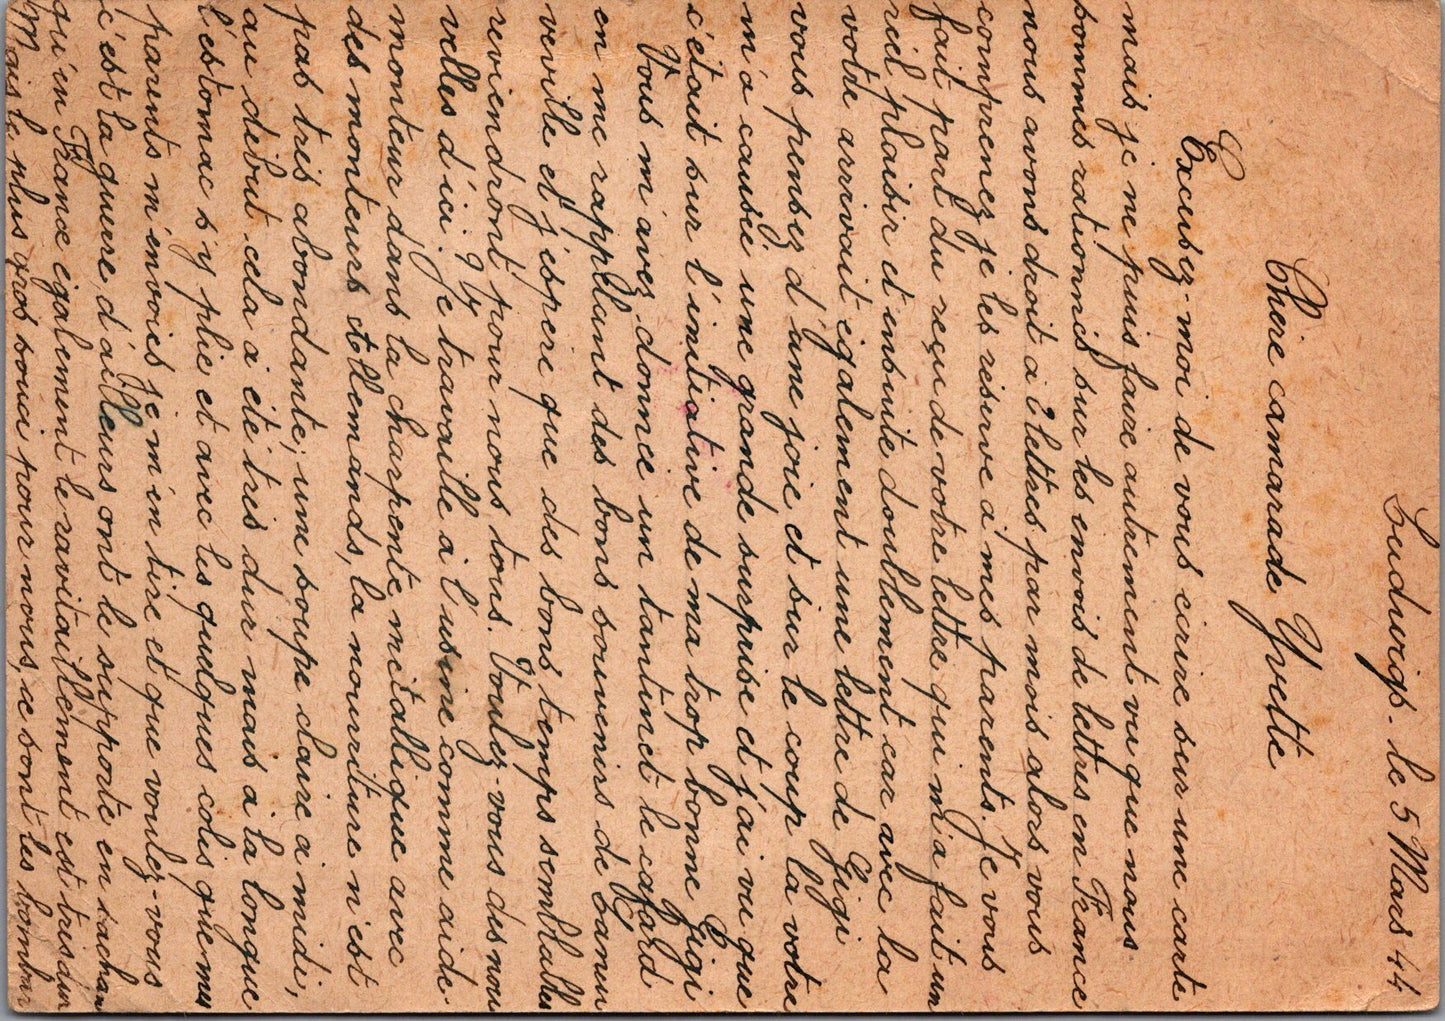 Ludwigs. le 5 Mars 44
Chère camarade Yvette
Excusez-moi de vous écrire sur une carte
mais je ne puis faire autrement vu que nous
sommes rationnés sur les envois de lettres en France
nous avons droit à 2 lettres par mois alors vous
comprenez je les réserve à mes parents. Je vous
fait part du reçu de votre lettre qui m'a fait un
réel plaisir et ensuite doublement car avec la
votre arrivait également une lettre de Gigi
vous pensez d'une joie et sur le coup la votre
m'a causée une grande surprise et j'ai vu que
c'était sur l'initiative de ma trop bonne Gigi
Vous m'avez donné un tantinet le cafard
en me rappelant des bons souvenirs de
neville et j'espère que des bons temps semblables
reviendront pour nous tous. Voulez-vous des nou
velles d'ici. Je travaille à l'usine comme aide-
monteur dans la charpente métallique avec
des monteurs allemands, la nourriture n'est
pas très abondante; une soupe claire à midi,
au début cela a été très dur mais à la longue
l'estomac s'y plie et avec les quelques colis que mes
parents m'envois je m'en tire et que voulez-vous
c'est la guerre d'ailleurs ont le supporte en sachan
qu'en France également le ravitaillement est très dur
Mais le plus gros souci pour nous, ce sont les bombar